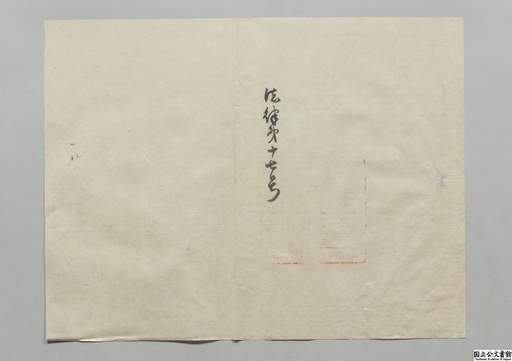 法律第十七号
国立公文書館
National Archives of Japan